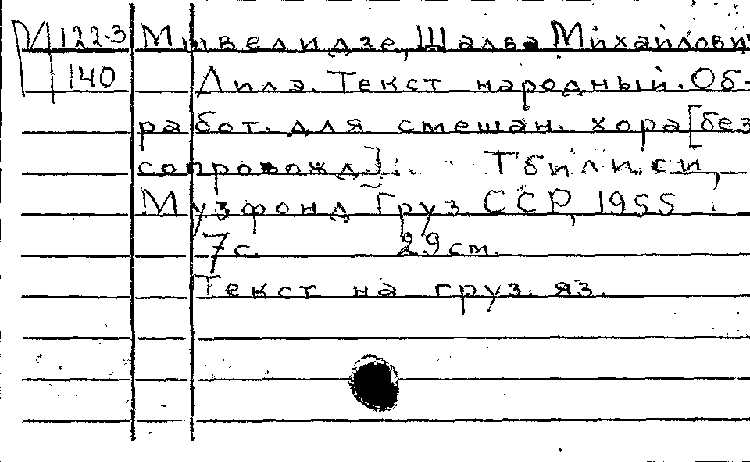 М 122-3 Мшвелидзе, Шалва Михайлович
140 Лила. Текст народный. Об-
работ. для смешан. хора [без
сопровожд.]. Тбилиси,
Музфонд Груз. ССР, 1955.
7 с. 29 см.
Текст на груз. яз.